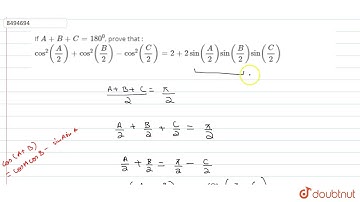 8494694
If A + B + C = 180⁰, prove that :
cos²(A/2) + cos²(B/2) − cos²(C/2) = 2 + 2 sin(A/2) sin(B/2) sin(C/2)
A+B+C/2 = π/2
A/2 + B/2 + C/2 = π/2
cos(A+B)
= cosA cosB - sinA sin
A/2 + B/2 = π/2 - C/2
doubtnut